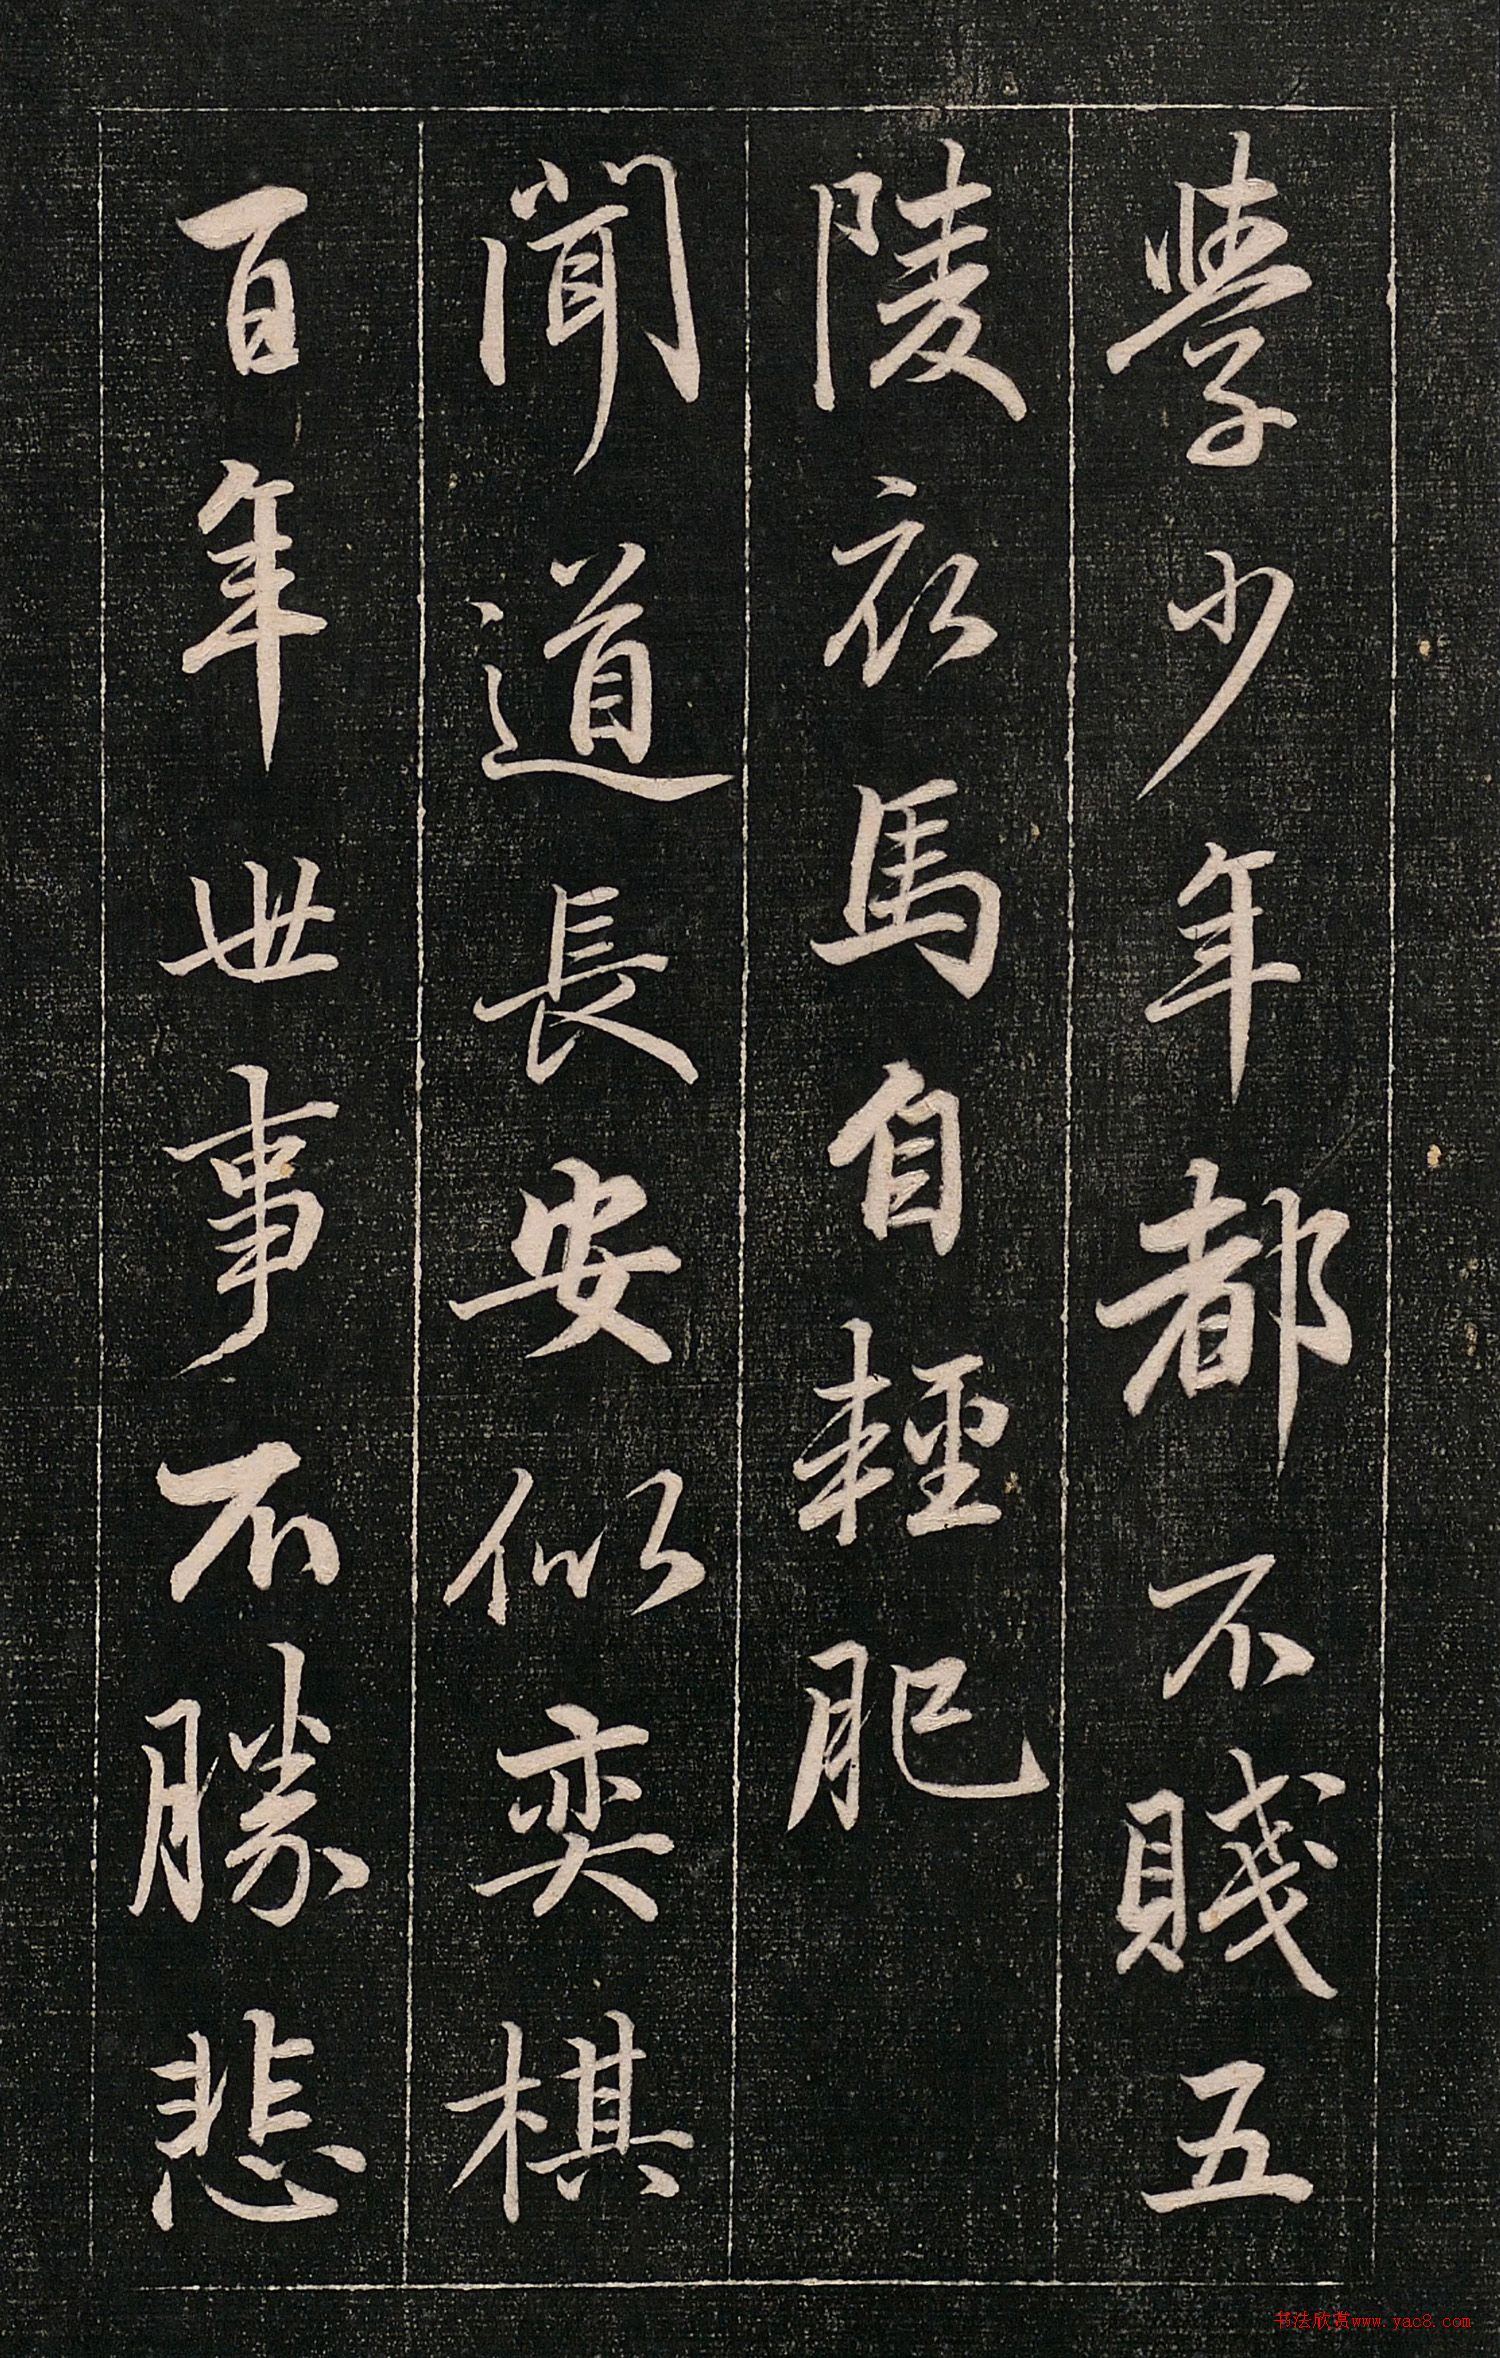 學少年都不賤五
陵衣馬自輕肥
聞道長安似奕棋
百年世事不勝悲
书法欣赏www.yac8.com